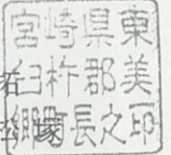 宮崎県東
臼杵郡美
郷町長之印
右